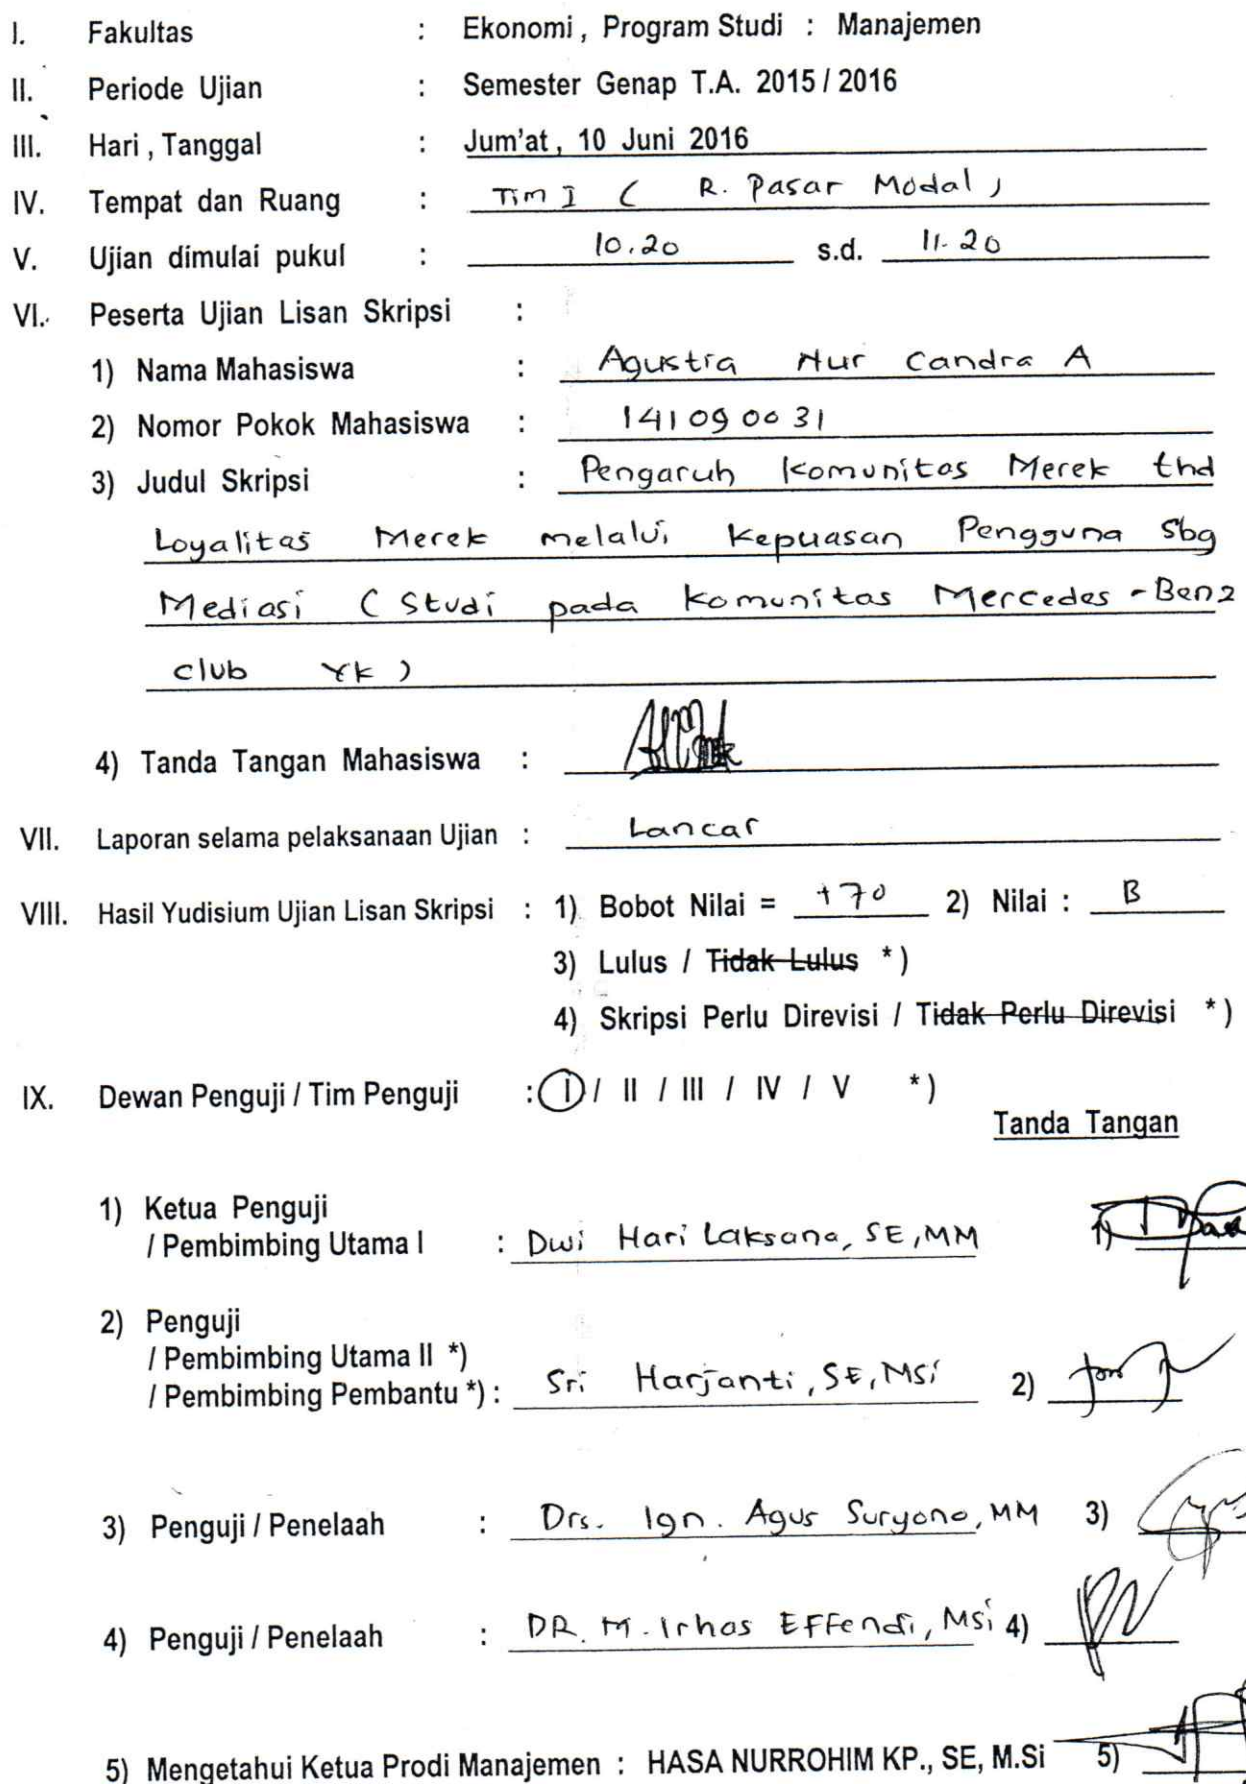 I. Fakultas : Ekonomi, Program Studi : Manajemen
II. Periode Ujian : Semester Genap T.A. 2015 / 2016
III. Hari, Tanggal : Jum'at, 10 Juni 2016
IV. Tempat dan Ruang : Tim I ( R. Pasar Modal )
V. Ujian dimulai pukul : 10.20 s.d. 11.20
VI. Peserta Ujian Lisan Skripsi :
1) Nama Mahasiswa : Agustia Nur Candra A
2) Nomor Pokok Mahasiswa : 141090031
3) Judul Skripsi : Pengaruh Komunitas Merek thd
Loyalitas Merek melalui Kepuasan Pengguna sbg
Mediasi ( Studi pada Komunitas Mercedes - Benz
club Yk )
4) Tanda Tangan Mahasiswa :
VII. Laporan selama pelaksanaan Ujian : Lancar
VIII. Hasil Yudisium Ujian Lisan Skripsi : 1) Bobot Nilai = +70 2) Nilai : B
3) Lulus / Tidak Lulus *)
4) Skripsi Perlu Direvisi / Tidak Perlu Direvisi *)
IX. Dewan Penguji / Tim Penguji : I / II / III / IV / V *)
Tanda Tangan
1) Ketua Penguji
/ Pembimbing Utama I : Dwi Hari Laksana, SE, MM 1)
2) Penguji
/ Pembimbing Utama II *)
/ Pembimbing Pembantu *) : Sri Harjanti, SE, MSi 2)
3) Penguji / Penelaah : Drs. Ign. Agus Suryono, MM 3)
4) Penguji / Penelaah : DR. M. Irhas Effendi, MSi 4)
5) Mengetahui Ketua Prodi Manajemen : HASA NURROHIM KP., SE, M.Si 5)